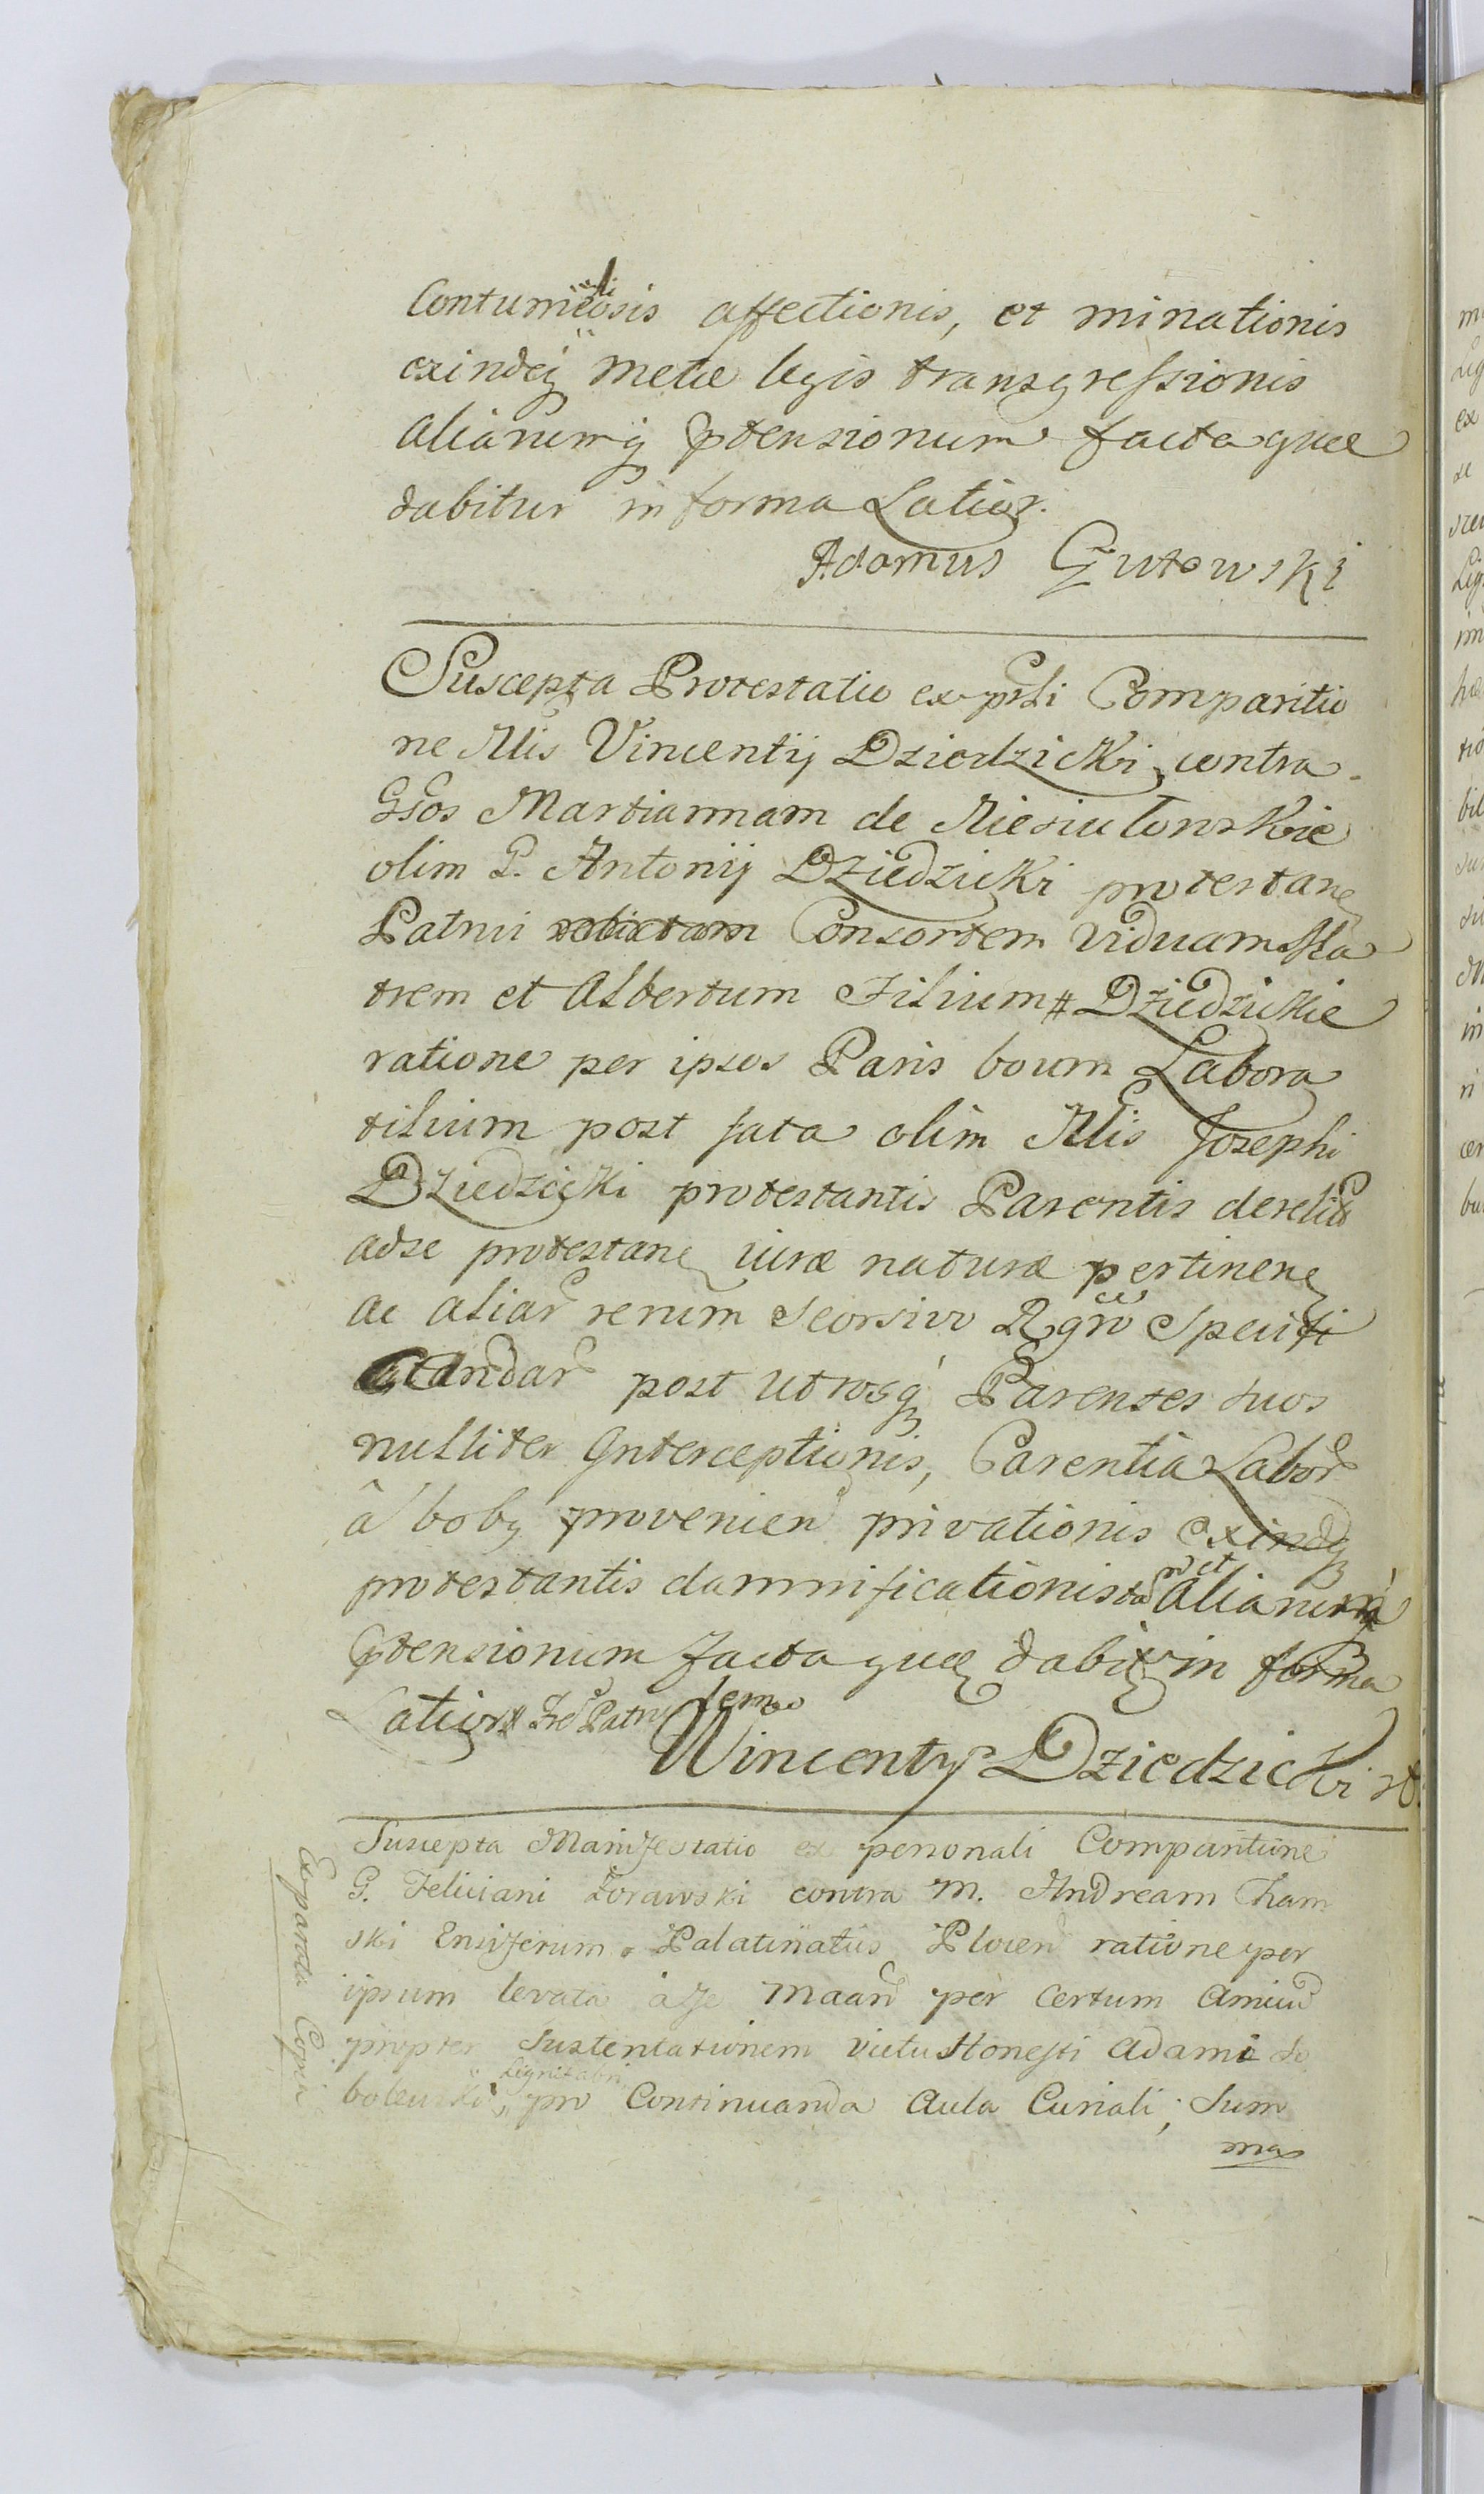 Contumeliosis affectionis, et minationis
exindeq metæ legis transgressionis
aliarumq ptensionum facta quæ
dabitur in forma Latior.
Adamus Gutowski
Suscepta Protestatio ex prsli Comparitio
ne Nlis Vincentij Dziedzicki, contra
GGos Martiannam de Niesiulowskie
olim G. Antonij Dziedzicki protestan
Patrui relictam Consortem Viduam Ma
trem et Albertum Filium # Dziedzickie
ratione per ipsos Paris boum Labora
tilium post fata olim Nlis Josephi
Dziedzicki protestantis Parentis derelict
ad se protestan iure naturæ pertinen
ac aliar rerum seorsivo Rgro Specifi
candar post utrosq Parentes suos
nulliter Interceptionis, Carentia Labor
â bobq provenien privationis exindq
protestantis damnificationis et aliarumq
ptensionum facta quæ dabitr in forma
Latior # Patru
Wincenty Dziedzicki
Suscepta Manifestatio ex personali Comparitione
G. Feliciani Żorawski contra M. Andream Cham
ski Ensiferum Palatinatus Plocen ratione per
ipsum levata a se per certum amicum
propter Sustentationem victus Honesti Adami So
bolewski, pro Continuanda Aula Curiali, Sum
ma
Exparata Copia